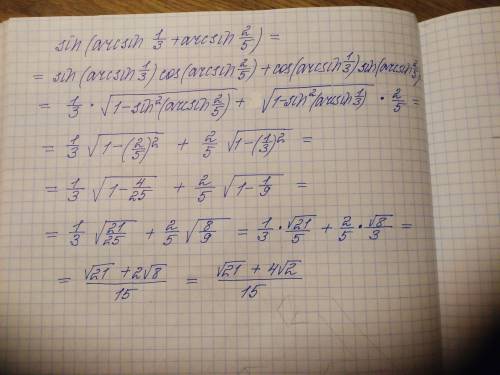 sin(arcsin 1/3 + arcsin 2/5) =
= sin(arcsin 1/3) cos(arcsin 2/5) + cos(arcsin 1/3) sin(arcsin 2/5)
= 1/3 · √(1-sin²(arcsin 2/5)) + √(1-sin²(arcsin 1/3)) · 2/5 =
= 1/3 √(1-(2/5)²) + 2/5 √(1-(1/3)²) =
= 1/3 √(1-4/25) + 2/5 √(1-1/9) =
= 1/3 √(21/25) + 2/5 √(8/9) = 1/3 · √21/5 + 2/5 · √8/3 =
= (√21 + 2√8)/15 = (√21 + 4√2)/15